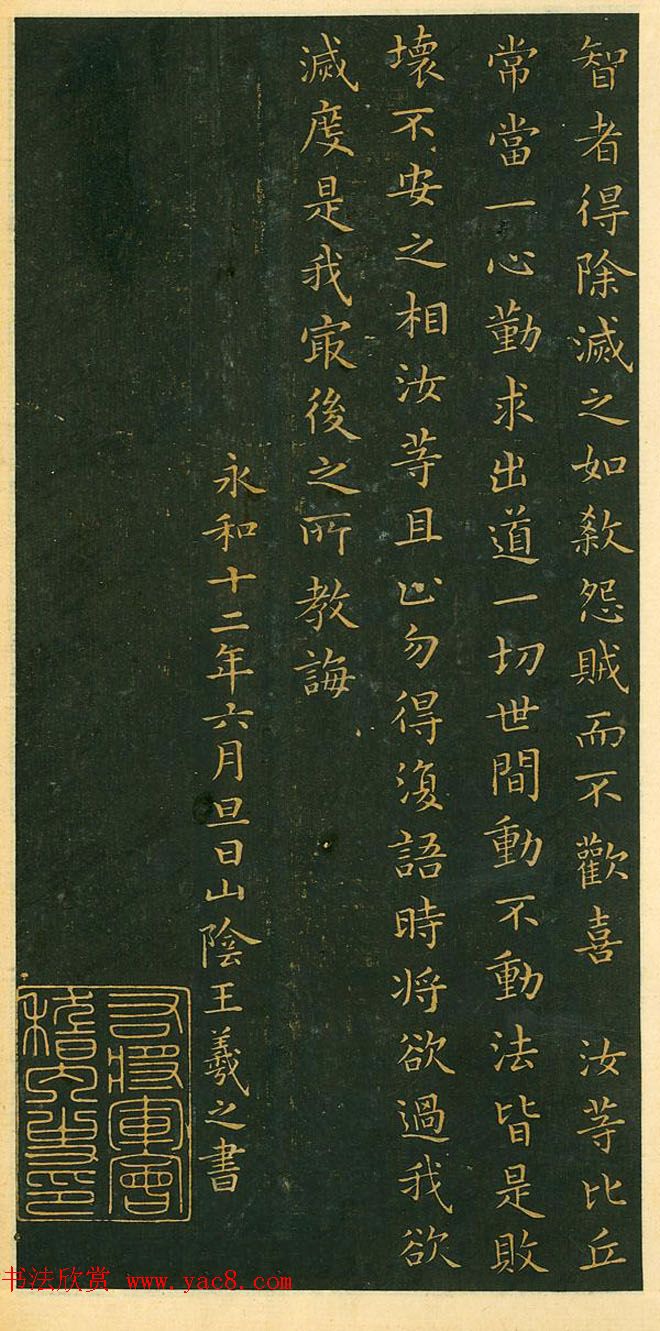 智者得除滅之如殺怨賊而不歡喜 汝等比丘
常當一心勤求出道一切世間動不動法皆是敗
壞不安之相汝等且止勿得復語時将欲過我欲
滅度是我㝡後之所教誨
永和十二年六月旦日山陰王羲之書
右將軍會
稽內史印
书法欣赏 www.yac8.com